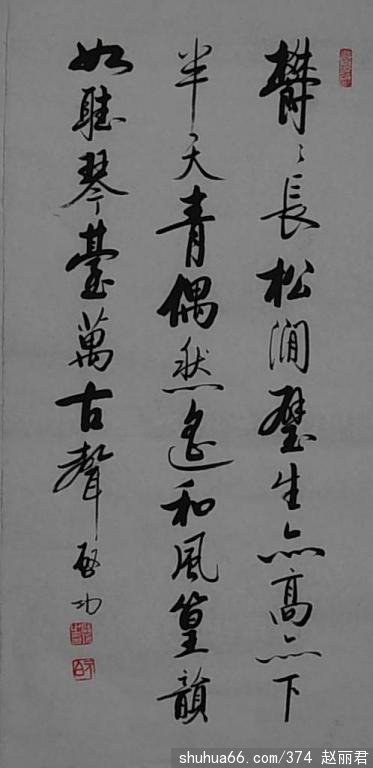 鬱々長松澗壁生亦高亦下
半天青偶然遙和風篁韻
如聽琴臺萬古聲 啓功
shuhua66.com/374 赵丽君